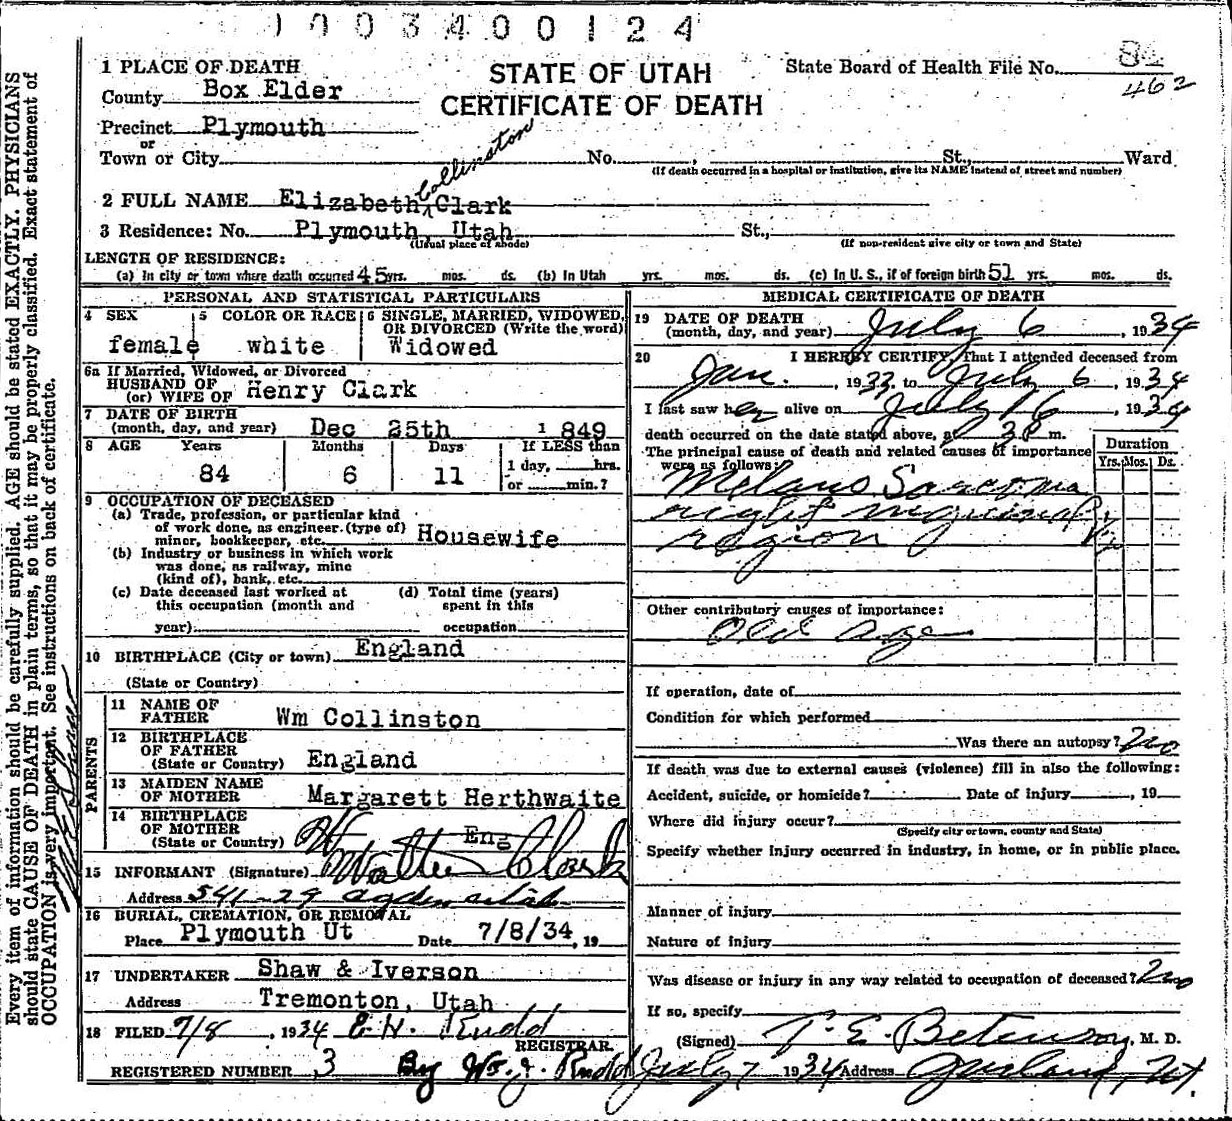 1003400124
1 PLACE OF DEATH
STATE OF UTAH
CERTIFICATE OF DEATH
State Board of Health File No. 84
462
County Box Elder
Precinct Plymouth
or
Town or City No. , St., Ward
(If death occurred in a hospital or institution, give its NAME instead of street and number)
2 FULL NAME Elizabeth Collinston Clark
3 Residence: No. Plymouth, Utah St.,
(Usual place of abode) (If non-resident give city or town and State)
LENGTH OF RESIDENCE:
(a) In city or town where death occurred 45 yrs. mos. ds. (b) In Utah yrs. mos. ds. (c) In U. S., if of foreign birth 51 yrs. mos. ds.
PERSONAL AND STATISTICAL PARTICULARS
4 SEX 5 COLOR OR RACE 6 SINGLE, MARRIED, WIDOWED,
OR DIVORCED (Write the word)
female white Widowed
6a If Married, Widowed, or Divorced
HUSBAND OF
(or) WIFE OF Henry Clark
7 DATE OF BIRTH
(month, day, and year) Dec 25th 1849
8 AGE Years Months Days If LESS than
84 6 11 1 day, hrs.
or min.?
9 OCCUPATION OF DECEASED
(a) Trade, profession, or particular kind
of work done, as engineer (type of)
miner, bookkeeper, etc. Housewife
(b) Industry or business in which work
was done, as railway, mine
(kind of), bank, etc.
(c) Date deceased last worked at (d) Total time (years)
this occupation (month and spent in this
year) occupation
10 BIRTHPLACE (City or town) England
(State or Country)
PARENTS
11 NAME OF
FATHER Wm Collinston
12 BIRTHPLACE
OF FATHER
(State or Country) England
13 MAIDEN NAME
OF MOTHER Margarett Herthwaite
14 BIRTHPLACE
OF MOTHER
(State or Country) Eng
15 INFORMANT (Signature) Walter Clark
Address 541-29 Ogden Utah
16 BURIAL, CREMATION, OR REMOVAL
Place Plymouth Ut Date 7/8/34, 19
17 UNDERTAKER Shaw & Iverson
Address Tremonton, Utah
18 FILED 7/8, 1934 E. H. Rudd
REGISTRAR.
REGISTERED NUMBER 3 By Wm. J. Rudd
MEDICAL CERTIFICATE OF DEATH
19 DATE OF DEATH
(month, day, and year) July 6 1934
20 I HEREBY CERTIFY, That I attended deceased from
Jan. , 1933 to July 6, 1934
I last saw her alive on July 6, 1934
death occurred on the date stated above, at m.
The principal cause of death and related causes of importance
were as follows:
Duration
Yrs. Mos. Ds.
Melano Sarcoma
right inguinal
region
Other contributory causes of importance:
Old age
If operation, date of
Condition for which performed
Was there an autopsy? no
If death was due to external causes (violence) fill in also the following:
Accident, suicide, or homicide? Date of injury , 19
Where did injury occur?
(Specify city or town, county and State)
Specify whether injury occurred in industry, in home, or in public place.
Manner of injury
Nature of injury
Was disease or injury in any way related to occupation of deceased? no
If so, specify
(Signed) T. E. Betenson, M. D.
July 7 1934 Address Garland, Ut.
Every item of information should be carefully supplied. AGE should be stated EXACTLY. PHYSICIANS
should state CAUSE OF DEATH in plain terms, so that it may be properly classified. Exact statement of
OCCUPATION is very important. See instructions on back of certificate.